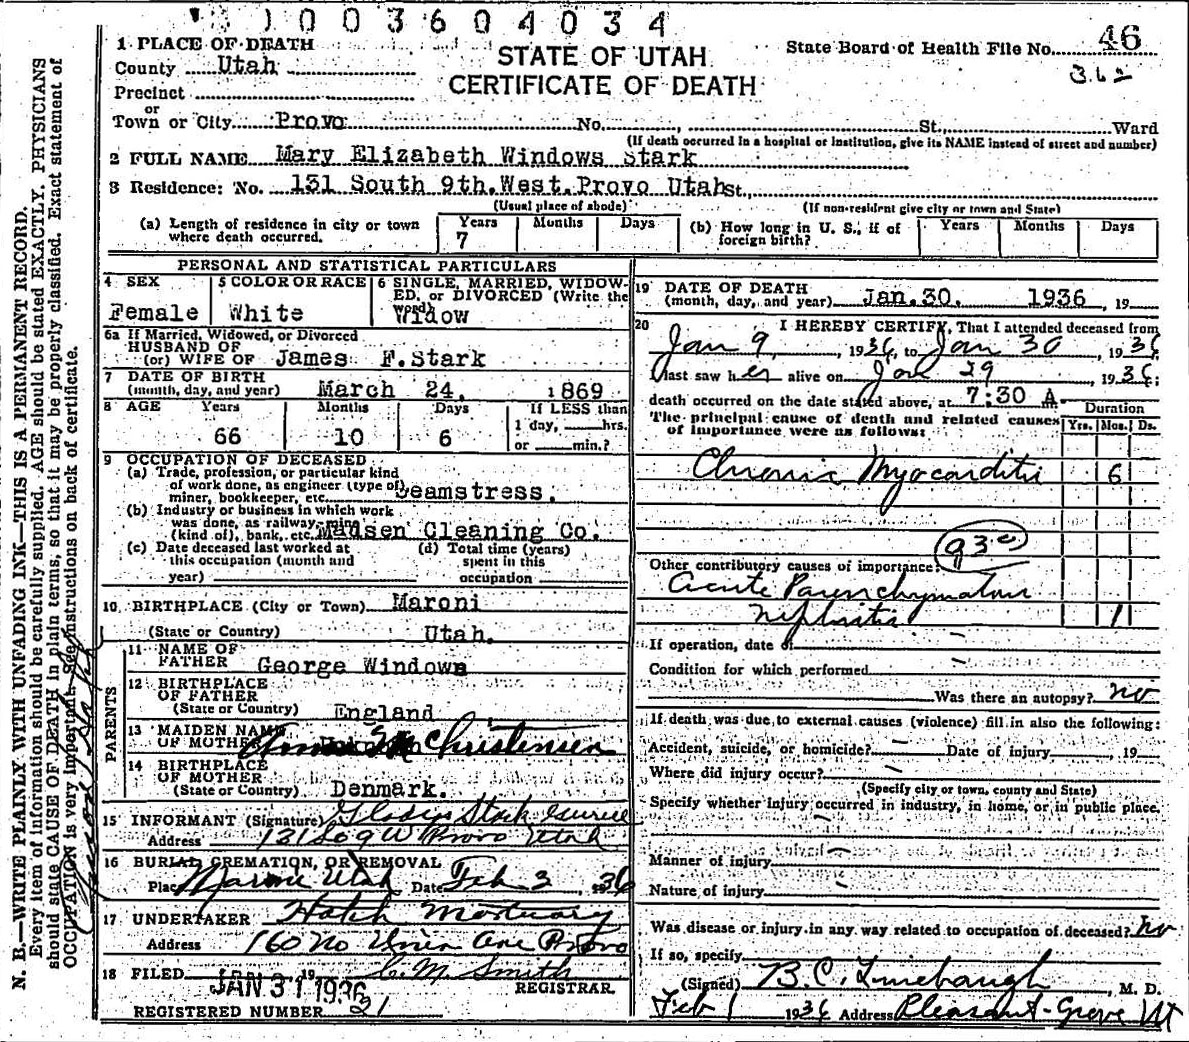 1003604034
1 PLACE OF DEATH
County Utah
Precinct
or
Town or City Provo No. , St., Ward
STATE OF UTAH
CERTIFICATE OF DEATH
State Board of Health File No. 46
362
(If death occurred in a hospital or institution, give its NAME instead of street and number)
2 FULL NAME Mary Elizabeth Windows Stark
3 Residence: No. 131 South 9th. West. Provo Utah St.,
(Usual place of abode) (If non-resident give city or town and State)
(a) Length of residence in city or town where death occurred. Years 7 Months Days
(b) How long in U. S., if of foreign birth? Years Months Days
PERSONAL AND STATISTICAL PARTICULARS
4 SEX Female
5 COLOR OR RACE White
6 SINGLE, MARRIED, WIDOWED, or DIVORCED (Write the word) Widow
6a If Married, Widowed, or Divorced
HUSBAND OF
(or) WIFE OF James F. Stark
7 DATE OF BIRTH
(month, day, and year) March 24, 1869
8 AGE Years 66 Months 10 Days 6
If LESS than
1 day, hrs.
or min.?
9 OCCUPATION OF DECEASED
(a) Trade, profession, or particular kind
of work done, as engineer (type of)
miner, bookkeeper, etc. Seamstress.
(b) Industry or business in which work
was done, as railway, mine
(kind of), bank, etc. Madsen Cleaning Co.
(c) Date deceased last worked at
this occupation (month and
year)
(d) Total time (years)
spent in this
occupation
10 BIRTHPLACE (City or Town) Maroni
(State or Country) Utah.
PARENTS
11 NAME OF
FATHER George Windows
12 BIRTHPLACE
OF FATHER
(State or Country) England
13 MAIDEN NAME
OF MOTHER Christensen
14 BIRTHPLACE
OF MOTHER
(State or Country) Denmark.
15 INFORMANT (Signature) Gladys Stark
Address 131 So 9 W Provo Utah
16 BURIAL, CREMATION, OR REMOVAL
Place Maroni Utah Date Feb 2, 1936
17 UNDERTAKER Hatch Mortuary
Address 160 No Univ Ave Provo
18 FILED JAN 31 1936 19 C. M. Smith
REGISTRAR.
REGISTERED NUMBER 21
19 DATE OF DEATH
(month, day, and year) Jan. 30. 1936, 19
20 I HEREBY CERTIFY, That I attended deceased from
Jan 9, 1936, to Jan 30, 1936
I last saw her alive on Jan 29, 1936;
death occurred on the date stated above, at 7:30 A.
The principal cause of death and related causes
of importance were as follows:
Duration
Yrs. Mos. Ds.
Chronic Myocarditis 6
93
Other contributory causes of importance:
Acute Parenchymatous
Nephritis 1
If operation, date of
Condition for which performed
Was there an autopsy? no
If death was due to external causes (violence) fill in also the following:
Accident, suicide, or homicide? Date of injury , 19
Where did injury occur?
(Specify city or town, county and State)
Specify whether injury occurred in industry, in home, or in public place.
Manner of injury
Nature of injury
Was disease or injury in any way related to occupation of deceased? no
If so, specify
(Signed) B. C. Linebaugh, M. D.
Feb 1 1936 Address Pleasant Grove Ut
N. B.—WRITE PLAINLY WITH UNFADING INK—THIS IS A PERMANENT RECORD.
Every item of information should be carefully supplied. AGE should be stated EXACTLY. PHYSICIANS
should state CAUSE OF DEATH in plain terms, so that it may be properly classified. Exact statement of
OCCUPATION is very important. See instructions on back of certificate.